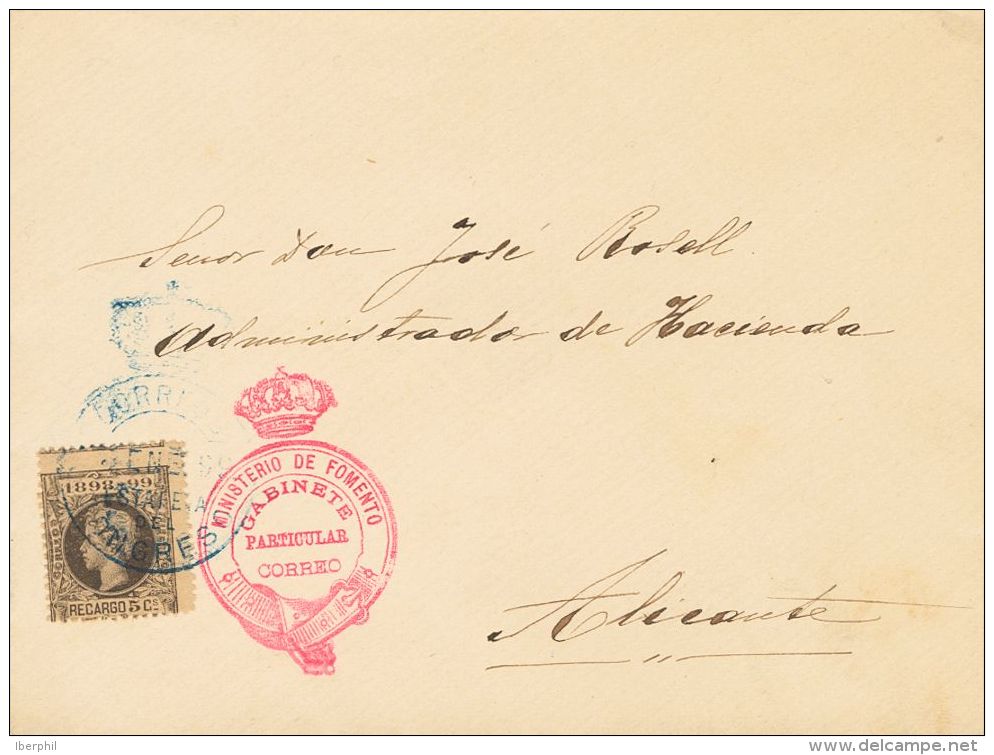 Señor Don José Rosell
Administrador de Hacienda
Alicante
CORREOS
ENE
ESTAFETA
DEL
CONGRESO
1898-99
RECARGO 5 Cs
MINISTERIO DE FOMENTO
GABINETE
PARTICULAR
CORREO
Iberphil
www.delcampe.net